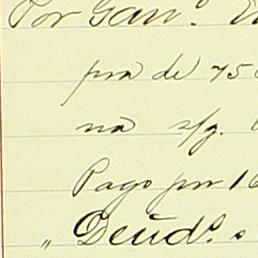 Por Gan.º
pra de 75
na s/g.
Pago por 16
„ Deud.º